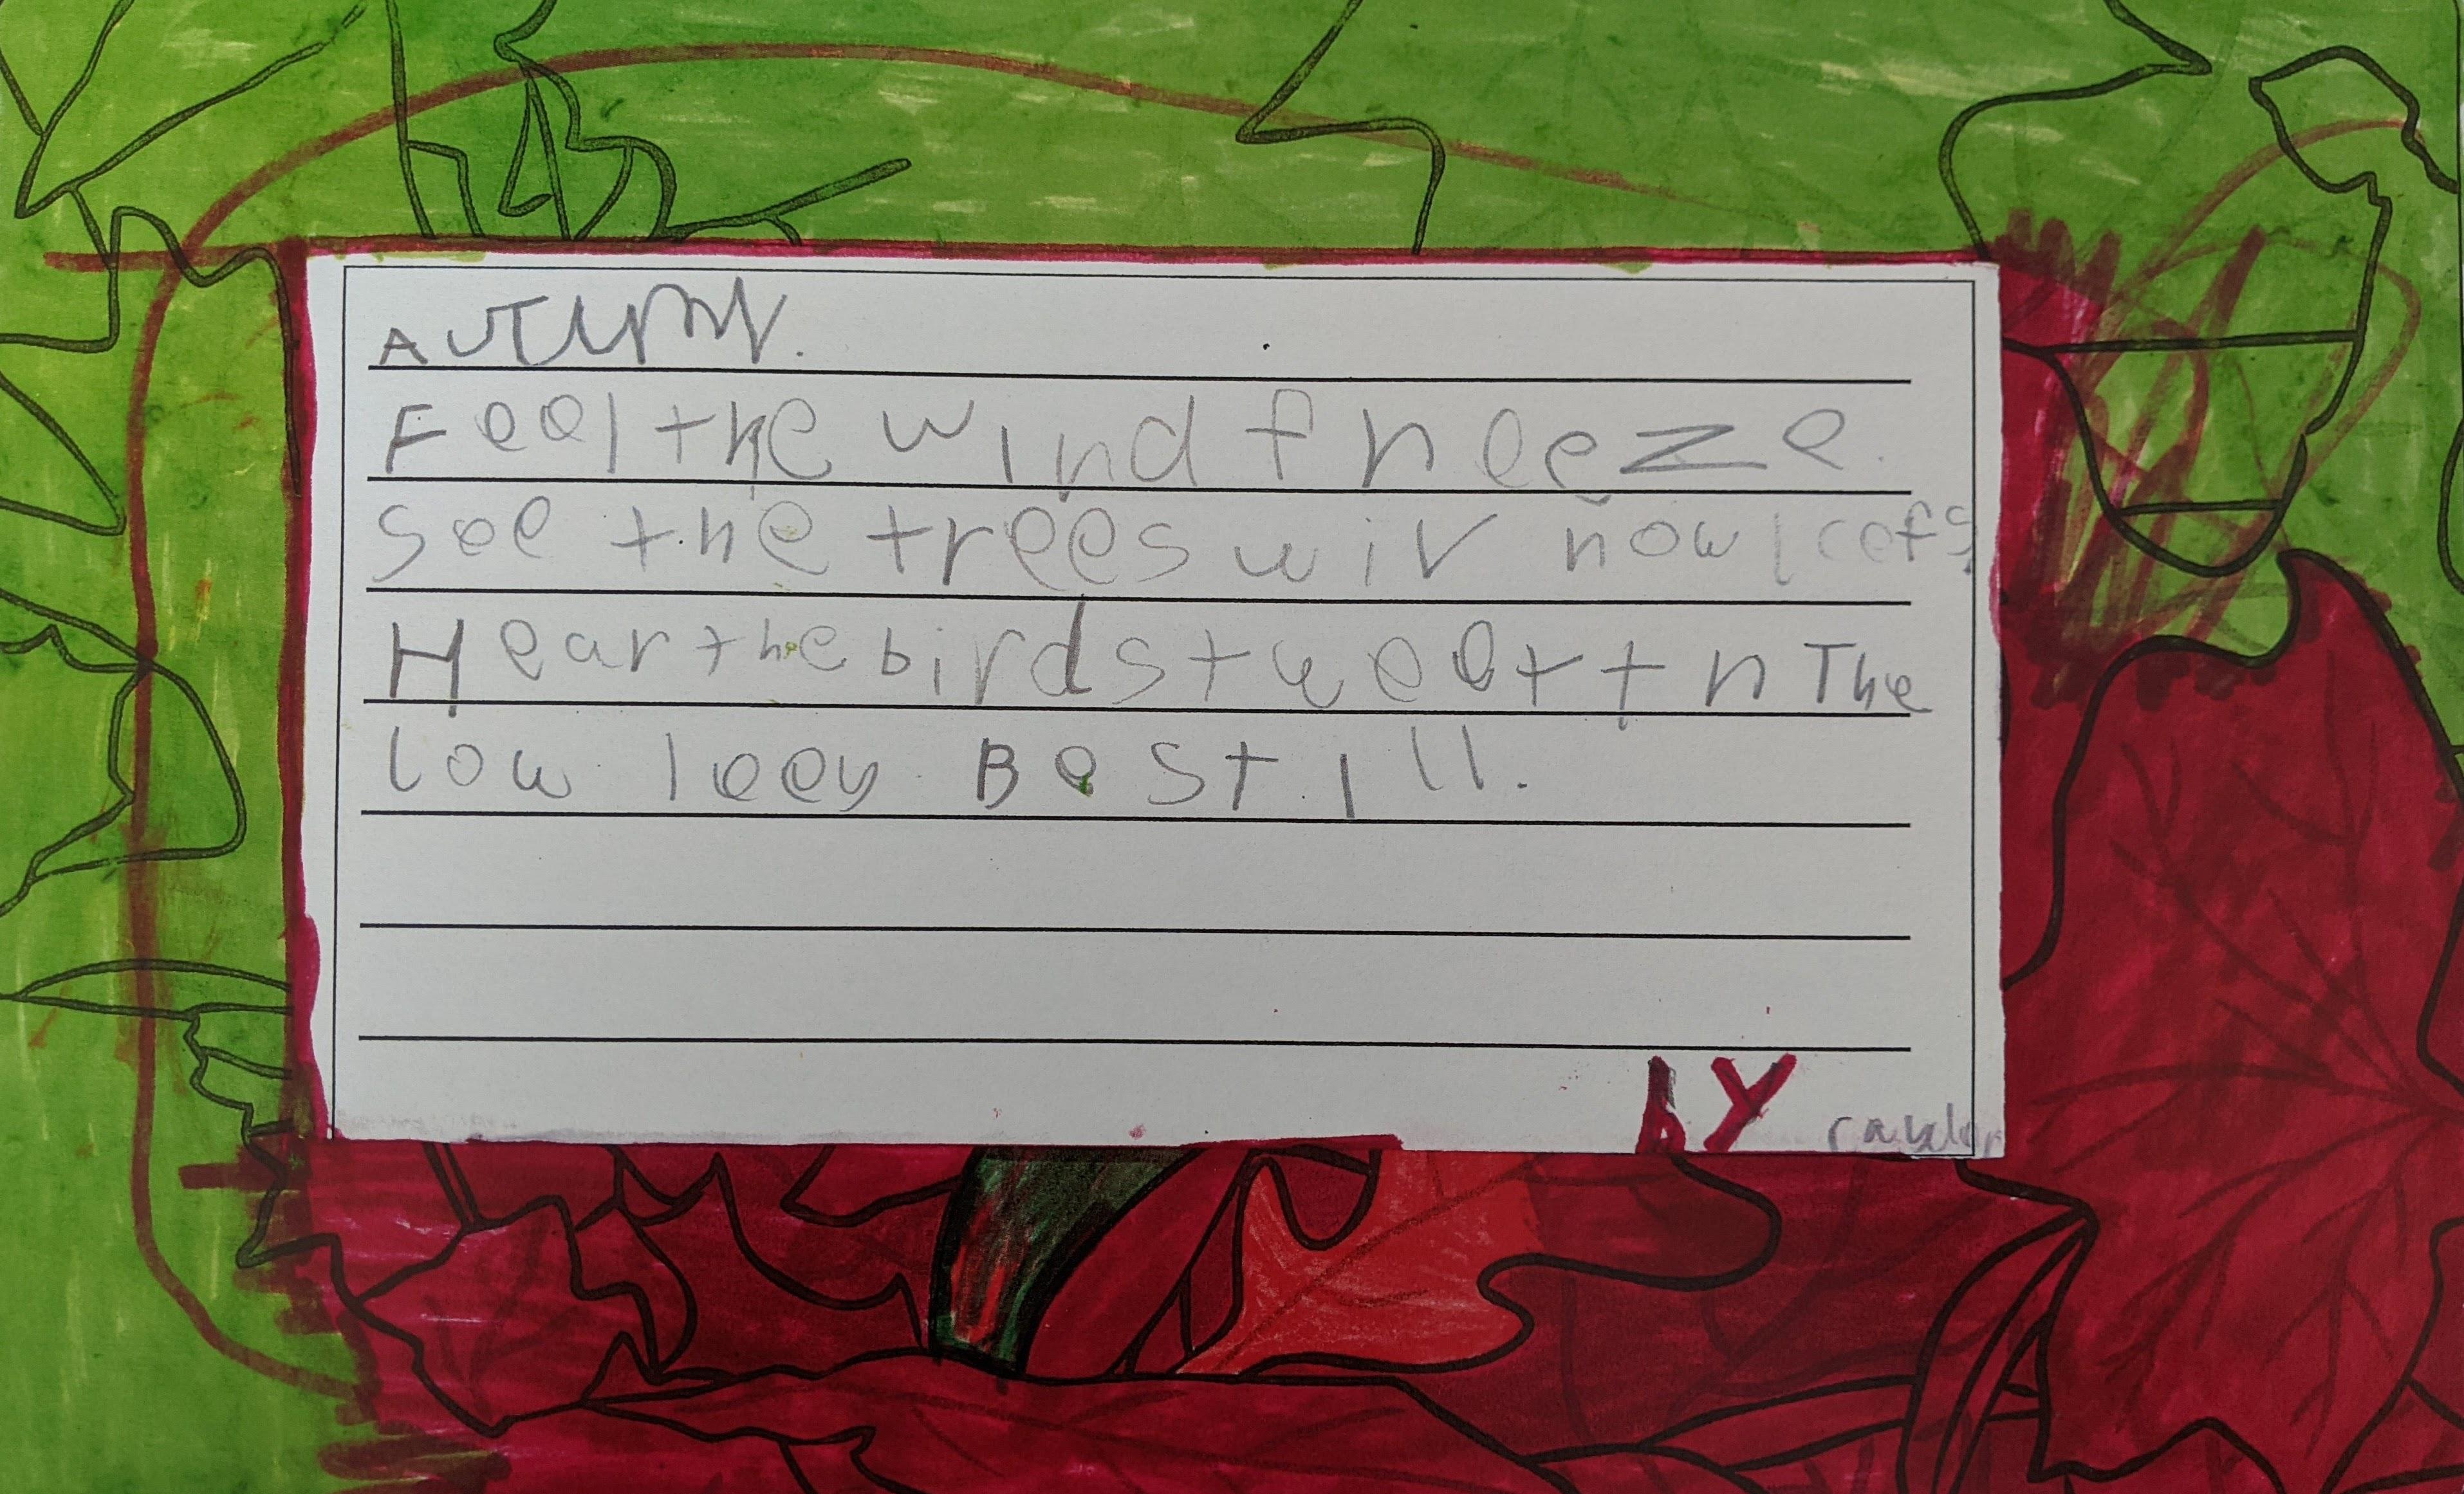 AUTUMN.
Feel the wind freeze.
See the trees wiv now leefs
Hear the birds tweet in The
low leev Be still.
by